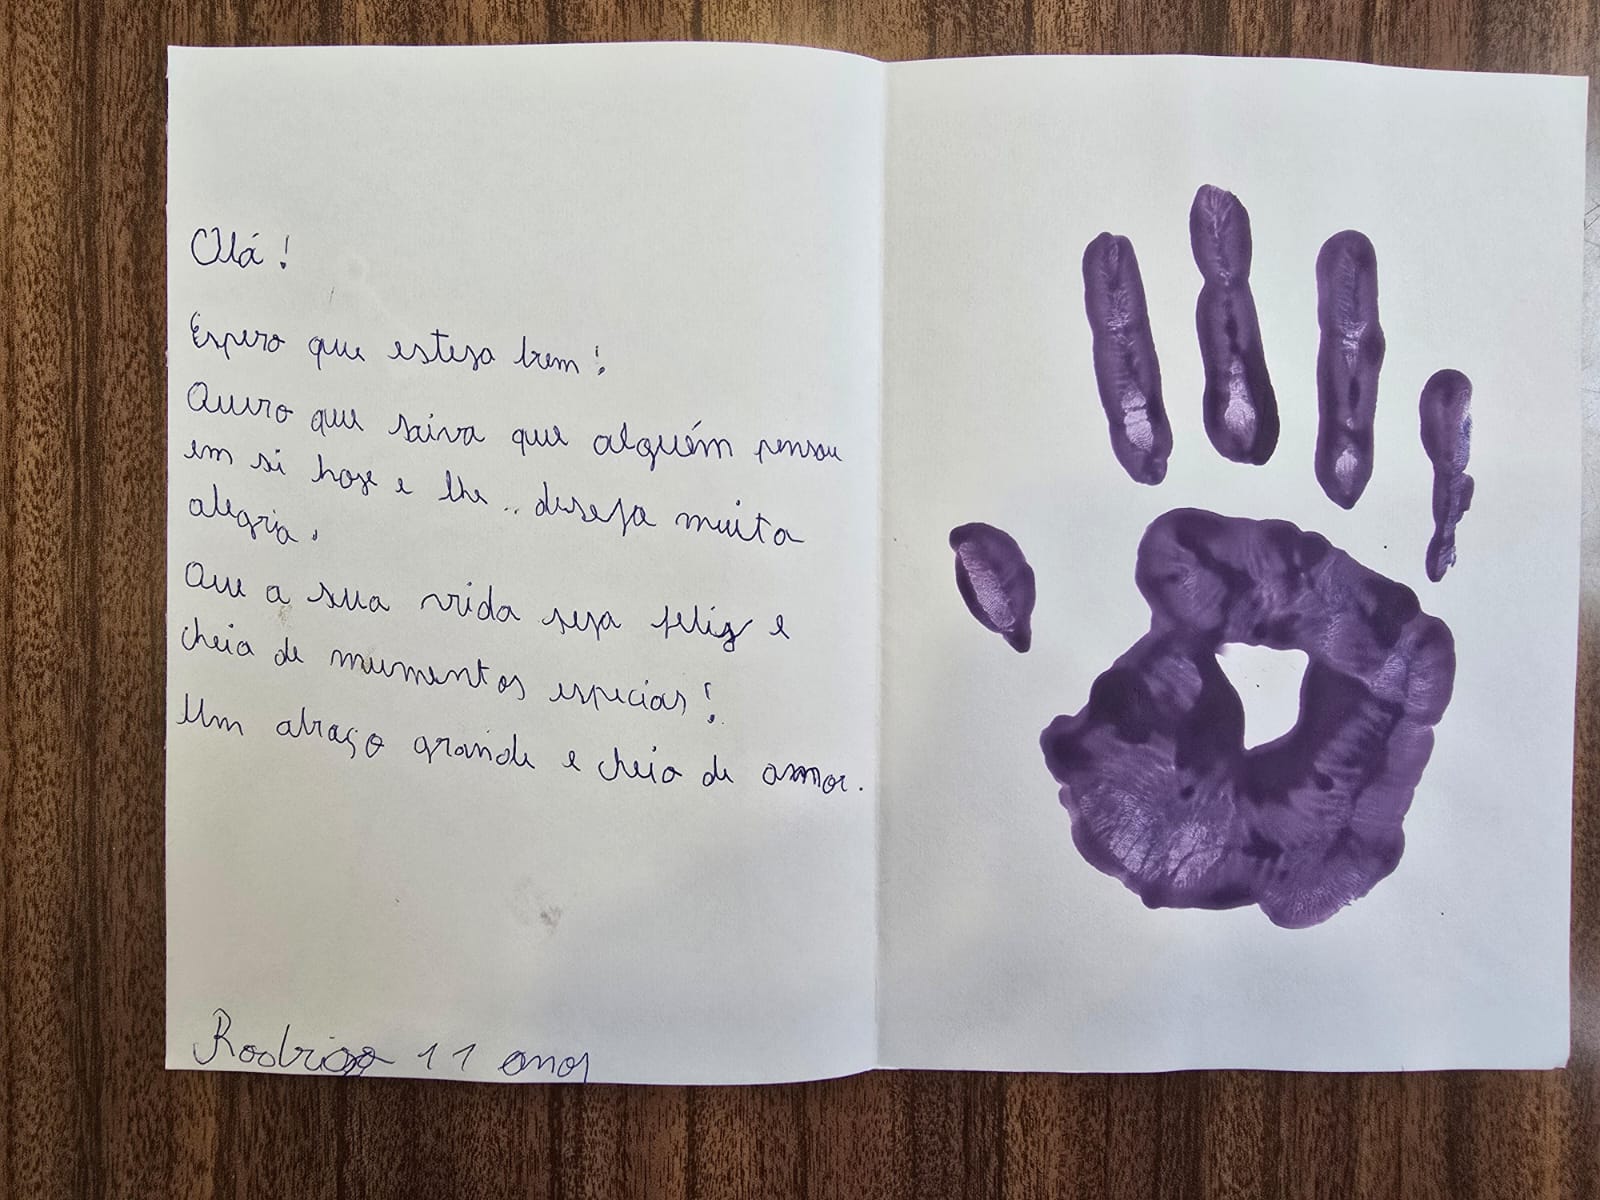 Olá!
Espero que esteja bem!
Quero que saiva que alguém pensou
em si hoje e lhe deseja muita
alegria.
Que a sua vida seja feliz e
cheia de mumentos especias!
Um abraço grande e cheio de amor.
Rodrigo 11 anos